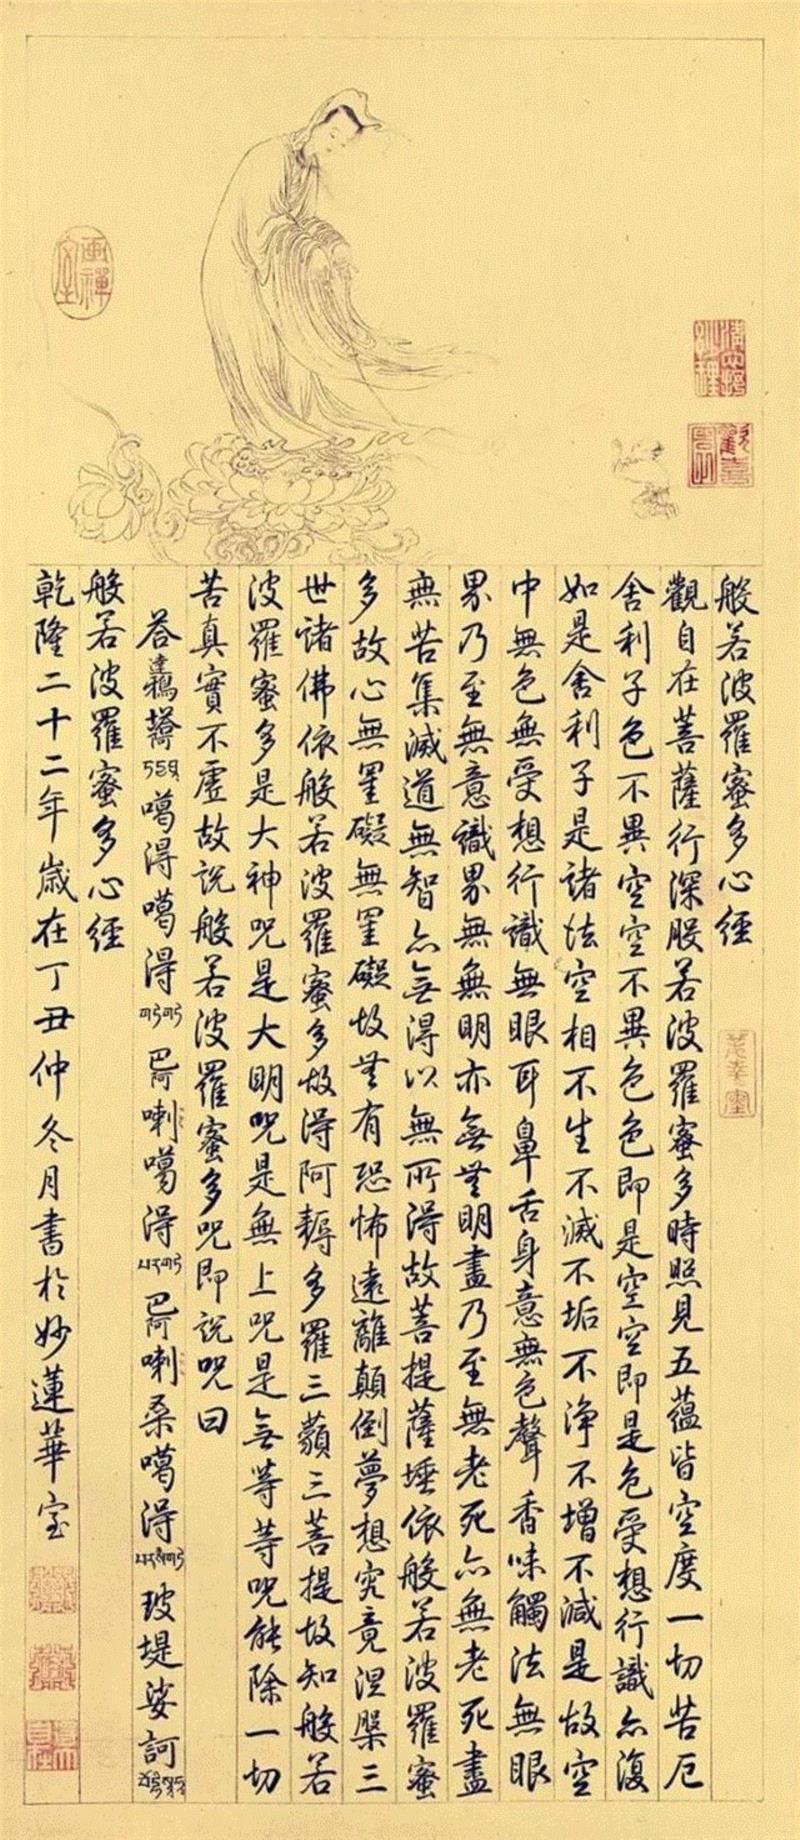 般若波羅蜜多心經
觀自在菩薩行深般若波羅蜜多時照見五蘊皆空度一切苦厄
舍利子色不異空空不異色色即是空空即是色受想行識亦復
如是舍利子是諸法空相不生不滅不垢不淨不增不減是故空
中無色無受想行識無眼耳鼻舌身意無色聲香味觸法無眼
界乃至無意識界無無明亦無無明盡乃至無老死亦無老死盡
無苦集滅道無智亦無得以無所得故菩提薩埵依般若波羅蜜
多故心無罣礙無罣礙故無有恐怖遠離顛倒夢想究竟涅槃三
世諸佛依般若波羅蜜多故得阿耨多羅三藐三菩提故知般若
波羅蜜多是大神咒是大明咒是無上咒是無等等咒能除一切
苦真實不虛故說般若波羅蜜多咒即說咒曰
答達 噶得噶得 巴阿喇噶得 巴阿喇桑噶得 玻堤娑訶
般若波羅蜜多心經
乾隆二十二年歲在丁丑仲冬月書於妙蓮華室
畫禪室